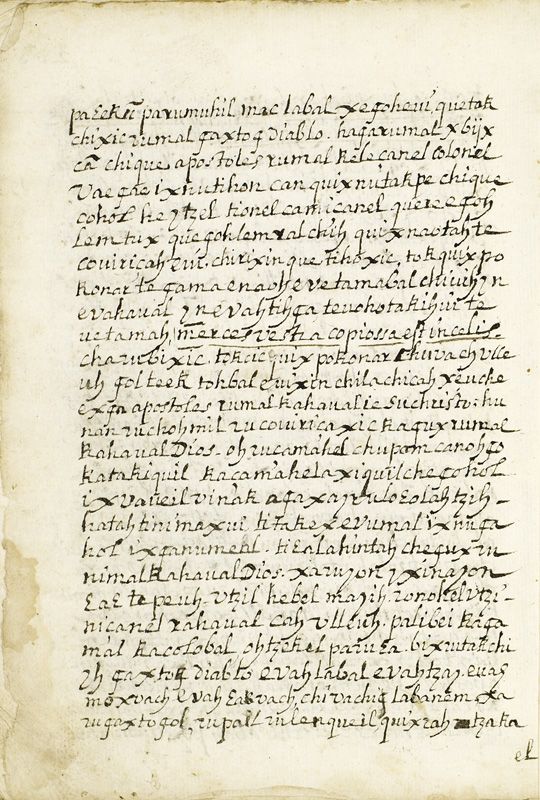 paɛek ru parumuhil mac labal xegohevi, quetak
chixic rumal gaxtog Diablo. hagarumal xbijx
can chique apostoles rumal kelecanel colonel
Vae gac ixnutihon can quixnutakpe chique
cohol heytzel tionel camicanel quere egoh
lem tux que gohlem ral chih quixnaotah te
couiricah ivi. chirixin que tihoxic. tok quix po
konar te gama enaohe vetamabal chiuih yn
evahaual yn evahtihga te vohotakihui te
vetamah, merces vestra copiossa est in celis.
cha rubixic. tok cic quix pokonar chuvach vlle
uh gol teek tohbal evixin chila chicah xeuche
exga apostoles rumal kahaual iesu christo. hu
nan ruchohmil ru couiricaxic kagux rumal
kahaual Dios. oh rucamahel chupam canohgo
katakiquil kacamahel axiquil che gohol
ixvaveil vinak agaxajrulo ɛolahtzih
hatah tinimaxui titakex evumal ixnuga
hol ixganumeal. tiɛalahintah chegux ru
nimal kahaual Dios. xaruyon yxinayon
ɛaɛ te peuh. Vtzil hebel majih. ronohel Vtzi-
nicanel rahaual cah vlleuh. palibei kaga
mal kacolobal oh tzekel paruɛa. bixrutakchi
yh gaxtog Diablo evah labal evahtzay. euag
moxvach evah ɛakvach, chivachig labanem xa
rugaxtogol, rupatl rulenqueil quixrah tzaka
el